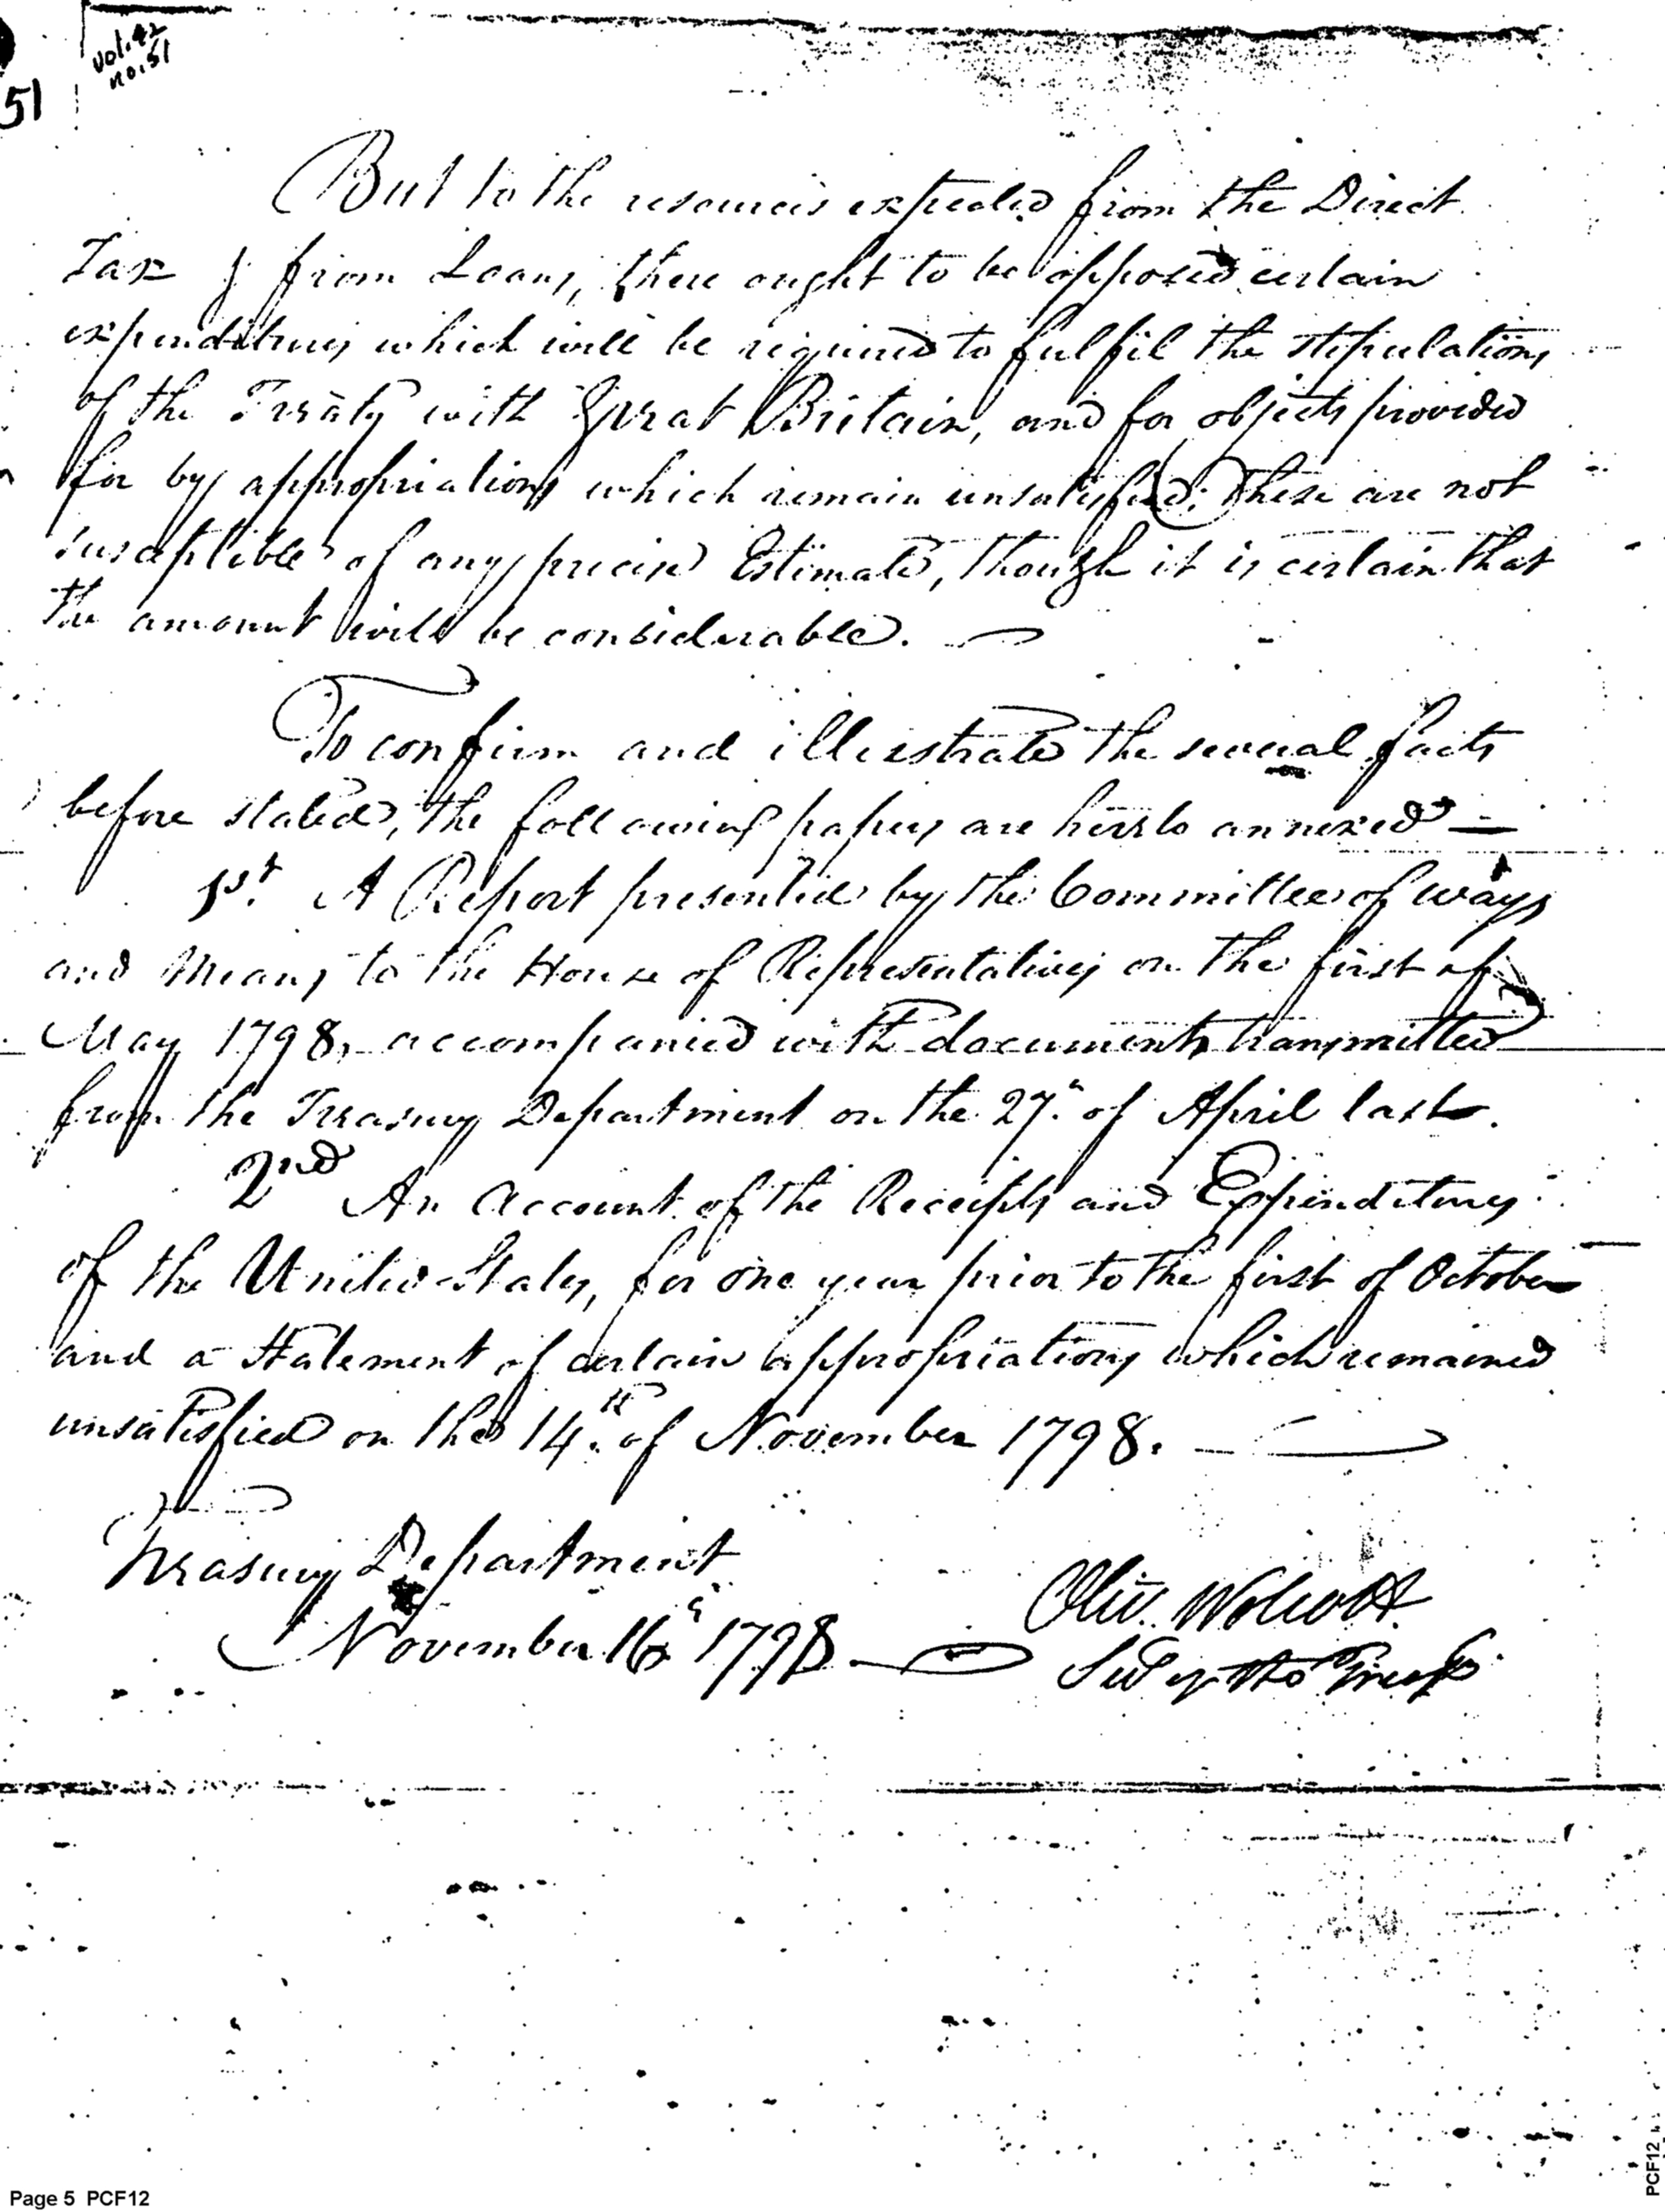 vol. 42
no. 51
51
But to the resources expected from the Direct
Tax & from Loans, there ought to be opposed certain
expenditures which will be required to fulfil the stipulations
of the Treaty with Great Britain, and for objects provided
for by appropriations which remain unsatisfied; These are not
susceptible of any precise Estimate, though it is certain that
the amount will be considerable.
To confirm and illustrate the several facts
before stated, the following papers are hereto annexed —
1st. A Report presented by the Committee of ways
and Means to the House of Representatives on the first of
May 1798, accompanied with documents transmitted
from the Treasury Department on the 27h. of April last.
2nd An Account of the Receipts and Expenditures
of the United States, for one year prior to the first of October
and a Statement of certain appropriations which remained
unsatisfied on the 14th. of November 1798. —
Treasury Department
November 16h 1798
Oliv. Wolcott.
Secy of the Treasy.
Page 5 PCF12
PCF12